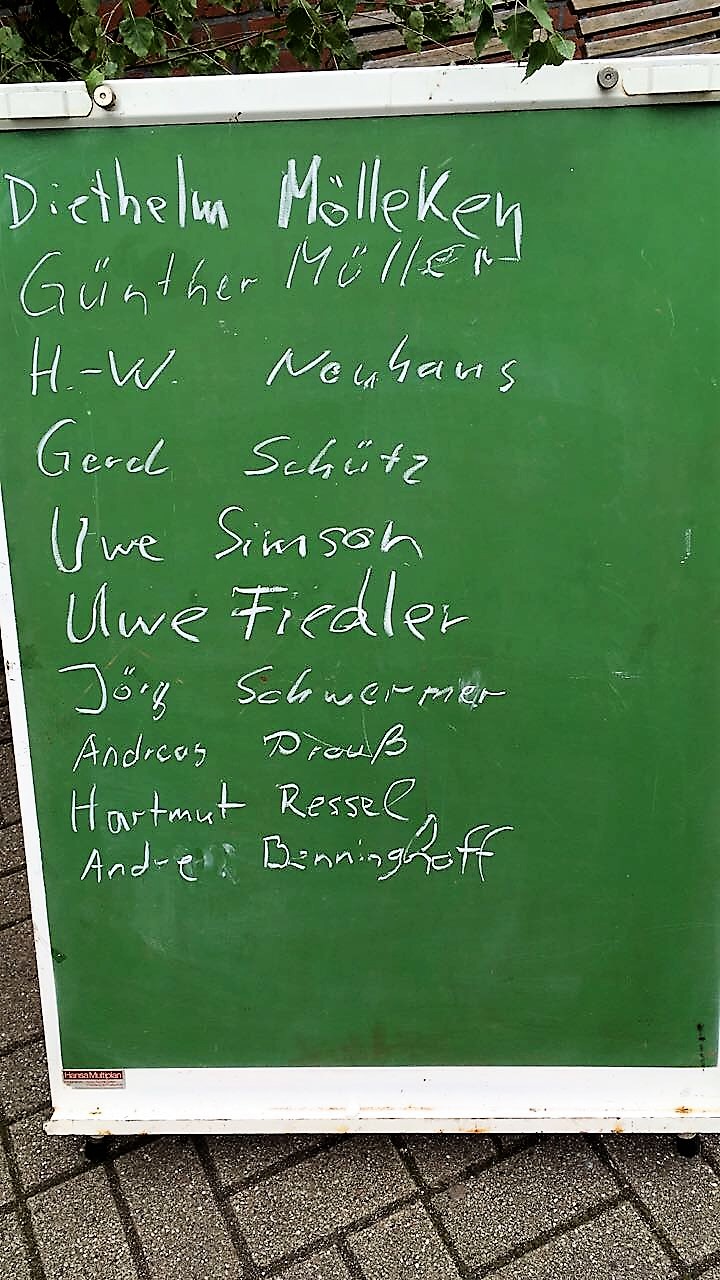 Diethelm Mölleken
Günther Müller
H.-W. Neuhaus
Gerd Schütz
Uwe Simson
Uwe Fiedler
Jörg Schwermer
Andreas Prauß
Hartmut Ressel
Andre Benninghoff
Hansa Multiplan